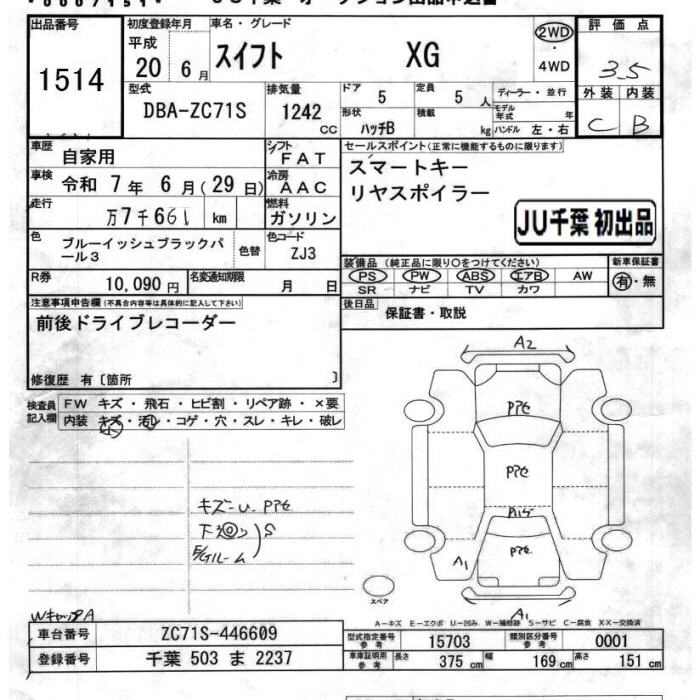 出品番号
1514
初度登録年月
平成
20 6月
車名・グレード
スイフト XG
2WD
・
4WD
評価点
3.5
外装 内装
C B
型式
DBA-ZC71S
排気量
1242
CC
ドア 5
定員 5 人
形状 ハッチB
積載 kg
ディーラー・並行
モデル年式 年
ハンドル 左・右
車歴
自家用
シフト
FAT
車検 令和 7年 6月(29日)
冷房
AAC
走行
万7千661 km
燃料
ガソリン
色
ブルーイッシュブラックパール3
色替
色コード
ZJ3
R券
10,090円
名変通知期限
月 日
セールスポイント(正常に機能するものに限ります)
スマートキー
リヤスポイラー
JU千葉 初出品
装備品(純正品に限り○をつけてください)
PS PW ABS エアB AW
SR ナビ TV カワ
新車保証書
有・無
後日品
保証書・取説
注意事項申告欄(不具合内容等は具体的に記入して下さい)
前後ドライブレコーダー
修復歴 有〔箇所 〕
検査員記入欄
FW キズ・飛石・ヒビ割・リペア跡・×要
内装 キズ・汚レ・コゲ・穴・スレ・キレ・破レ
小
キズ-U Pアセ
S
WキャップA
A2
Pアセ
Pアセ
Pアセ
A1
A1
スペア
A-キズ E-エクボ U-凹み W-補修跡 S-サビ C-腐食 XX-交換済
車台番号
ZC71S-446609
登録番号
千葉 503 ま 2237
型式指定番号
参考
15703
類別区分番号
参考
0001
車庫証明用
参考
長さ 375 cm
幅 169 cm
高さ 151 cm